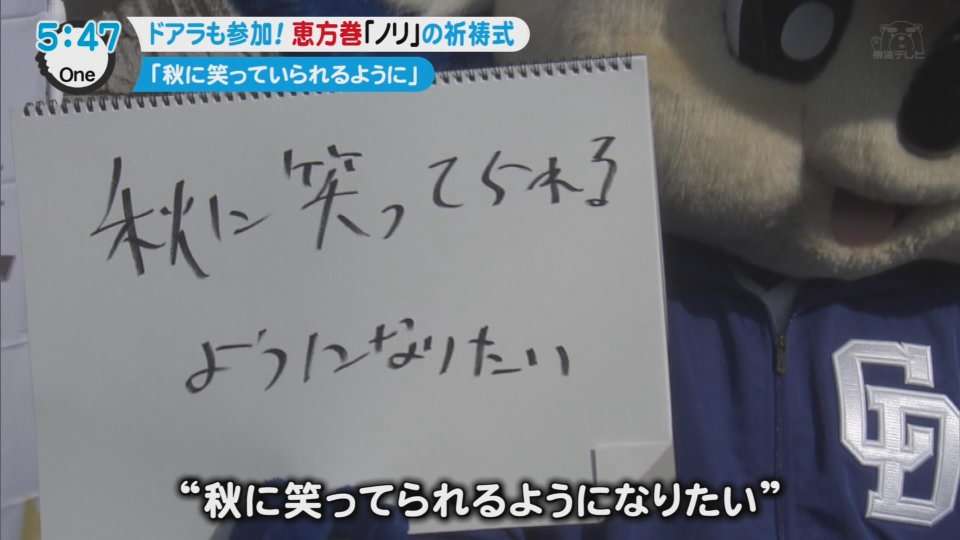 5:47
One
ドアラも参加！恵方巻「ノリ」の祈祷式
「秋に笑っていられるように」
東海テレビ
秋に笑ってられる
ようになりたい
CD
“秋に笑ってられるようになりたい”